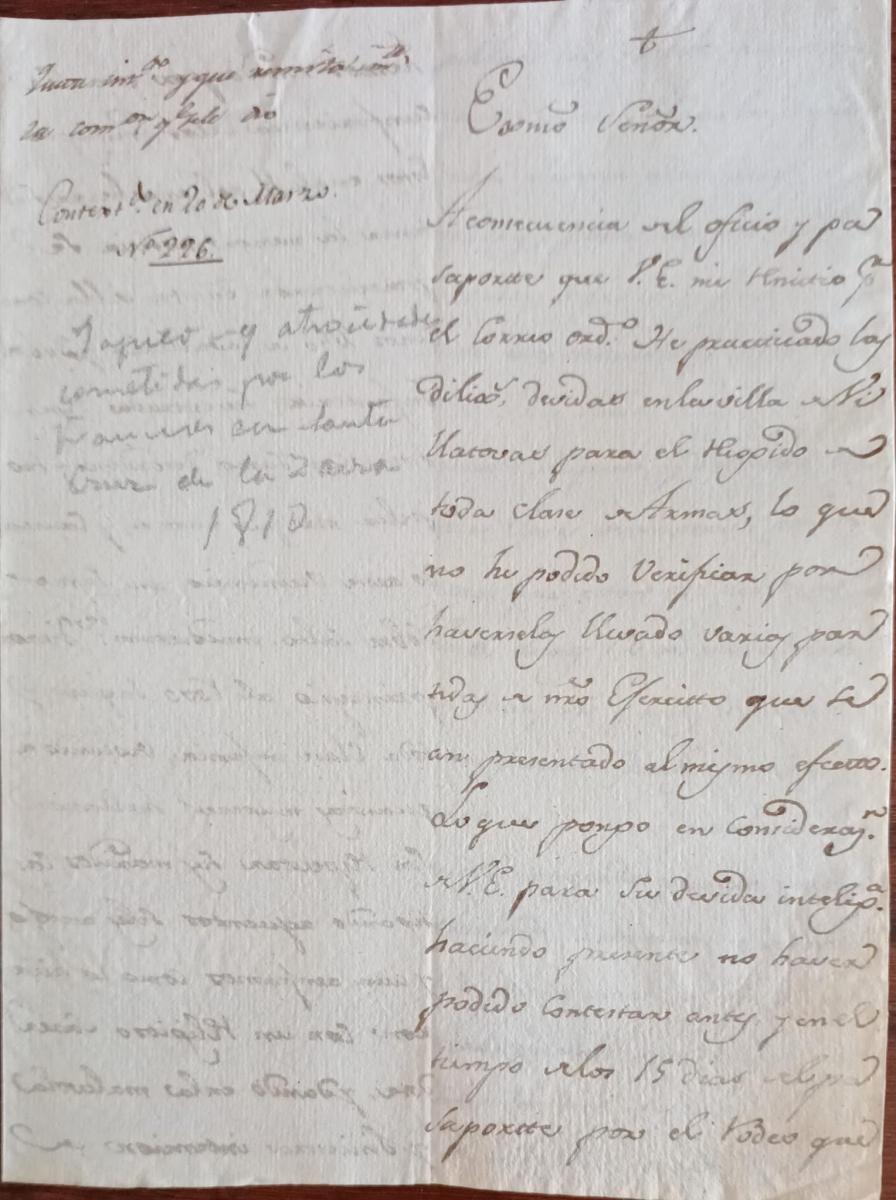 y que remita
la com.on
Context.do en 20 de Marzo.
N.o 226.
Saqueo y atrocidades
cometidas por los
Franceses en Santa
Cruz de la Zarza
1810
+
Exmo Señor.
A consecuencia del oficio y pa
saporte que V. E. me Remitio p.r
el Correo ord.o He practicado las
dilig.s devidas en la villa de Vi
llatovas para el Recojido de
toda clase de Armas, lo que
no he podido Verificar por
haverselas llevado varias par
tidas de nro Esercitto que se
an presentado al mismo efecto.
Lo que pongo en Consideraz.n
de V. E. para su devida intelig.a
haciendo presente no haver
podido Contestar antes y en el
tiempo de los 15 dias del pa
saporte por el Rodeo que